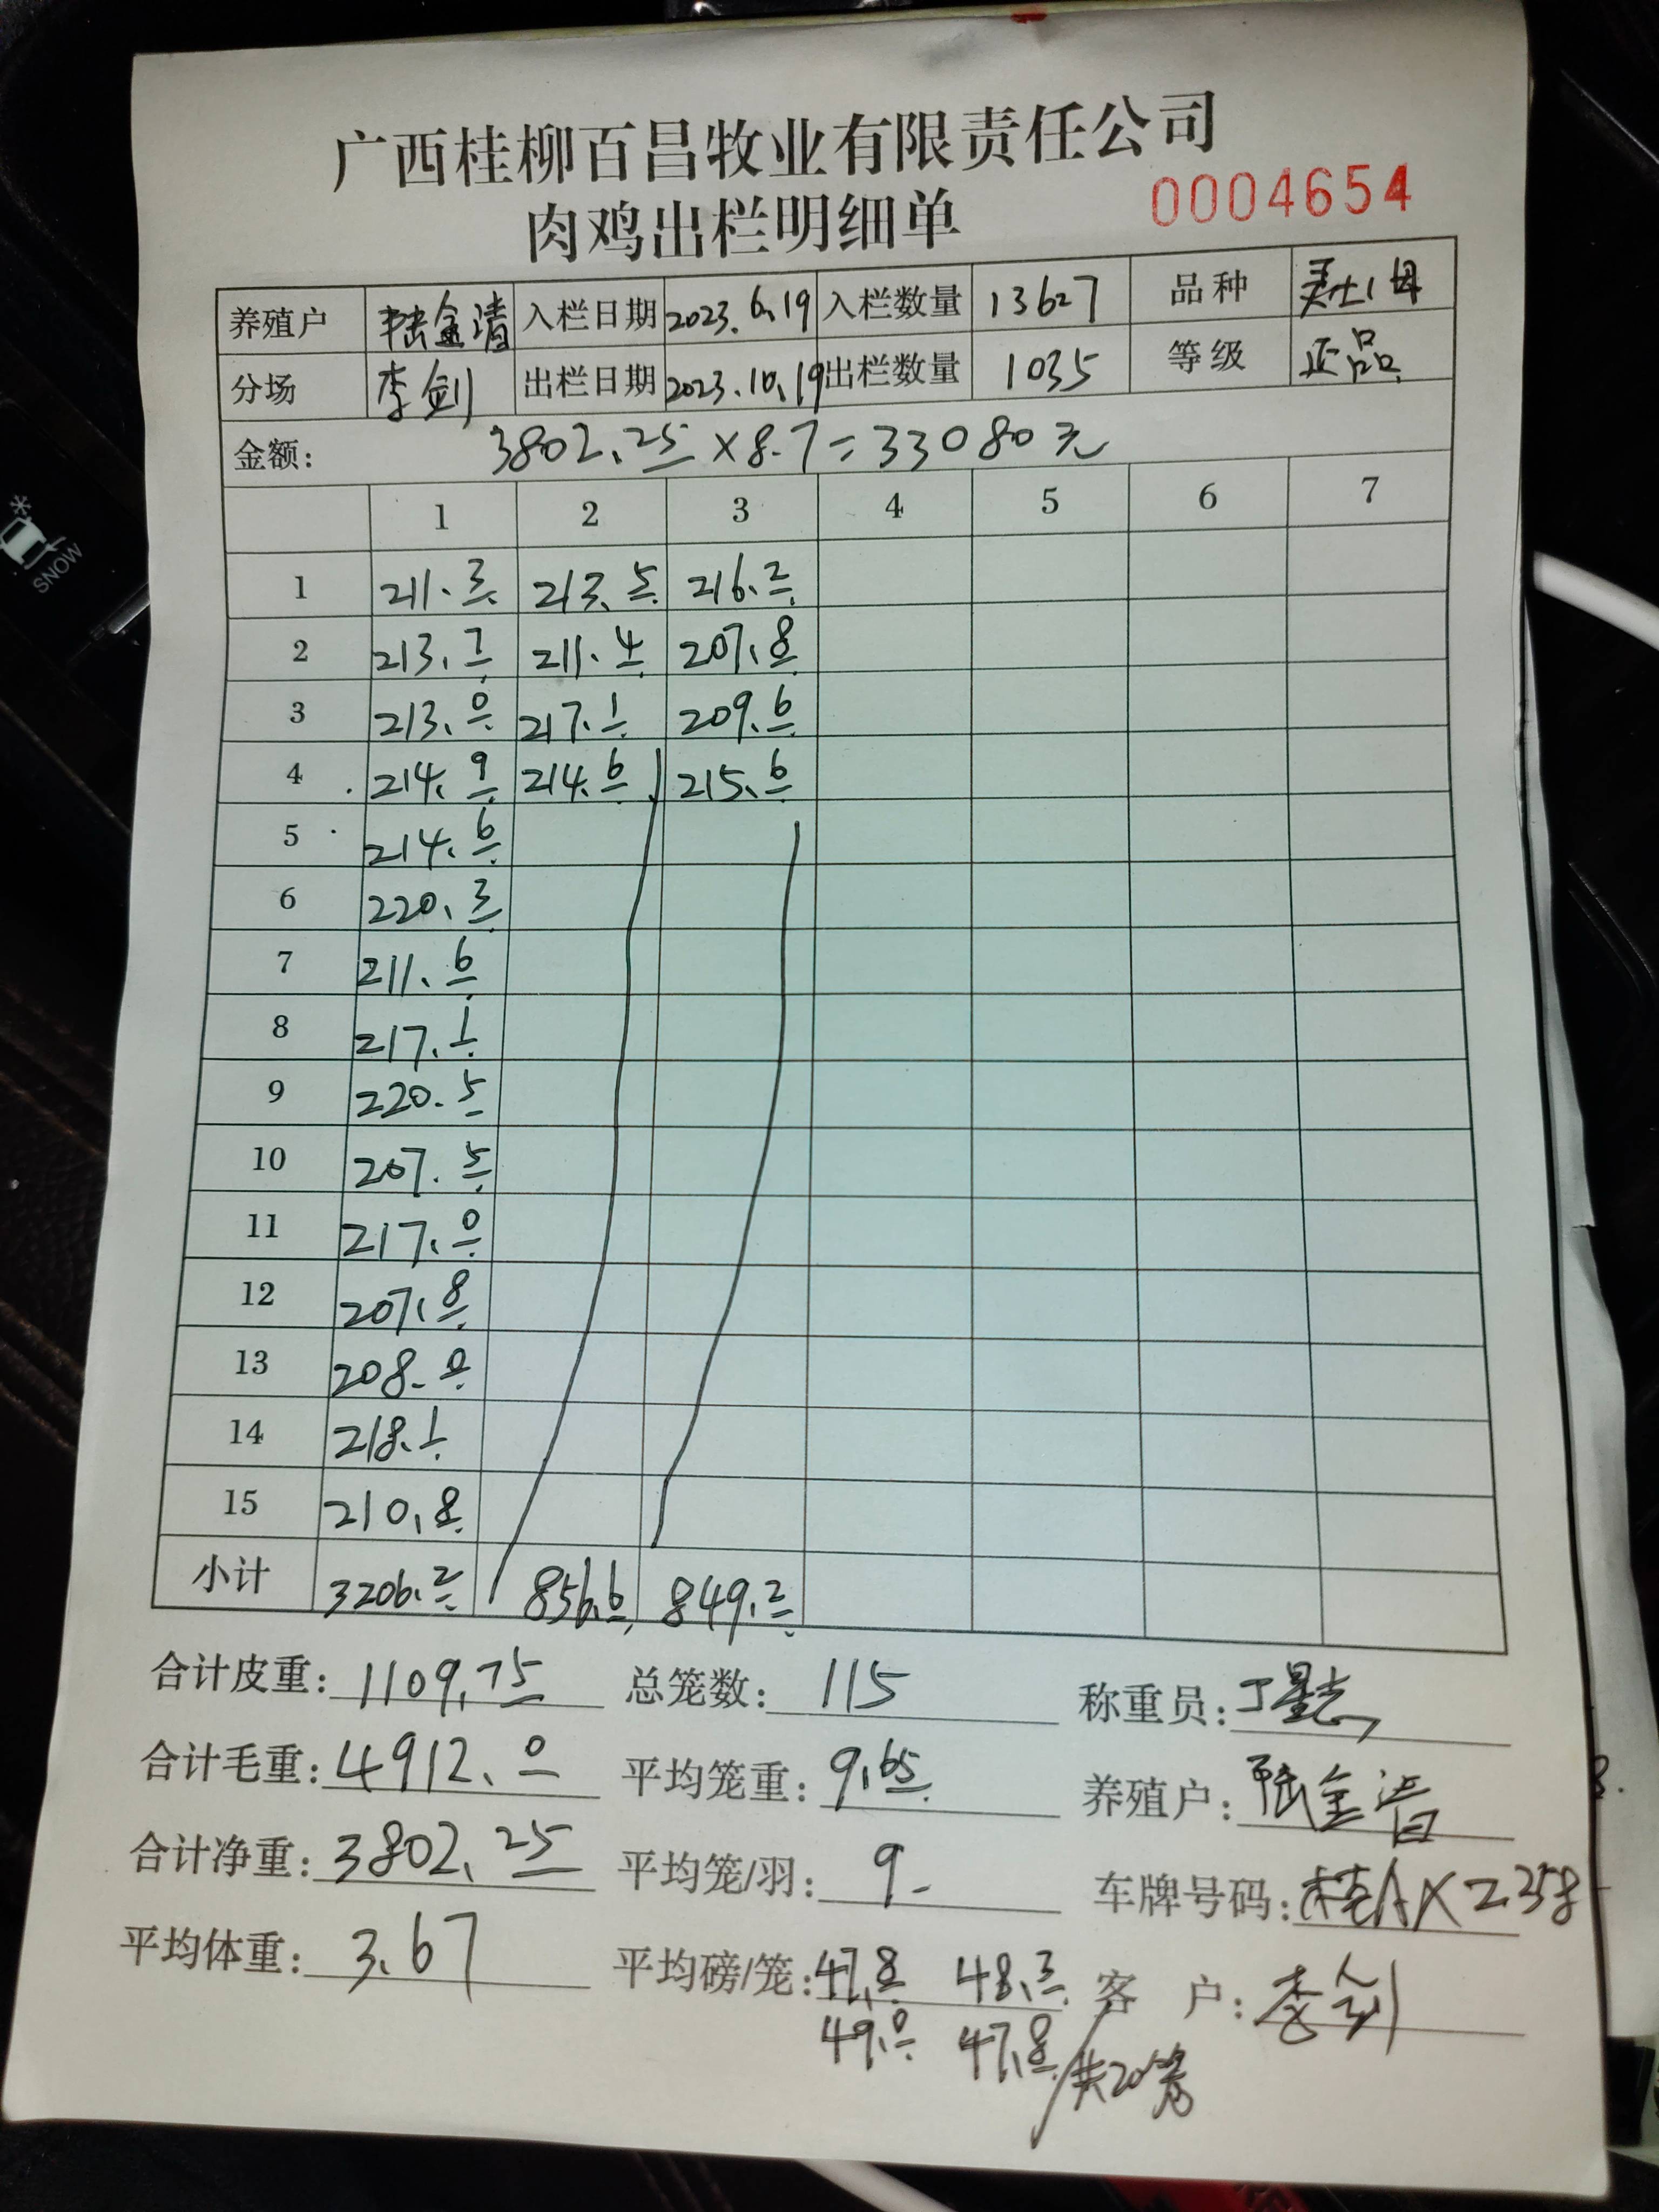 广西桂柳百昌牧业有限责任公司
肉鸡出栏明细单
0004654
养殖户 陆金清 入栏日期 2023.6.19 入栏数量 13627 品种
分场 李剑 出栏日期 2023.10.19 出栏数量 1035 等级 正品
金额: 3802.25×8.7=33080元
1 2 3 4 5 6 7
1 211.3 213.5 216.2
2 213.7 211.4 207.8
3 213.0 217.1 209.6
4 214.9 214.6 215.6
5 214.6
6 220.3
7 211.6
8 217.1
9 220.5
10 207.5
11 217.0
12 207.8
13 208.0
14 218.1
15 210.8
小计 3206.2 856.6 849.2
合计皮重: 1109.75 总笼数: 115 称重员: 丁星志
合计毛重: 4912.0 平均笼重: 9.65 养殖户: 陆金清
合计净重: 3802.25 平均笼/羽: 9 车牌号码: 桂AX2358
平均体重: 3.67 平均磅/笼: 47.8 48.3 客 户: 李剑
49.0 47.8 共20笼
SNOW